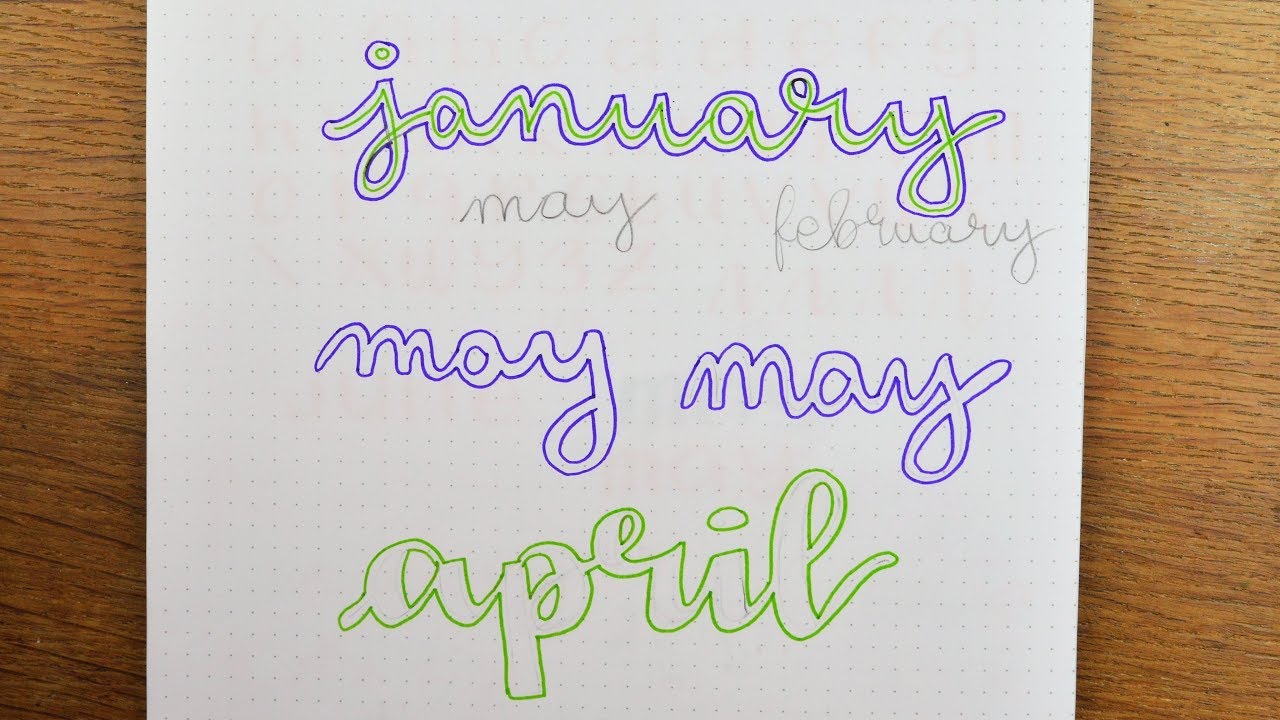 january
may february
may may
april